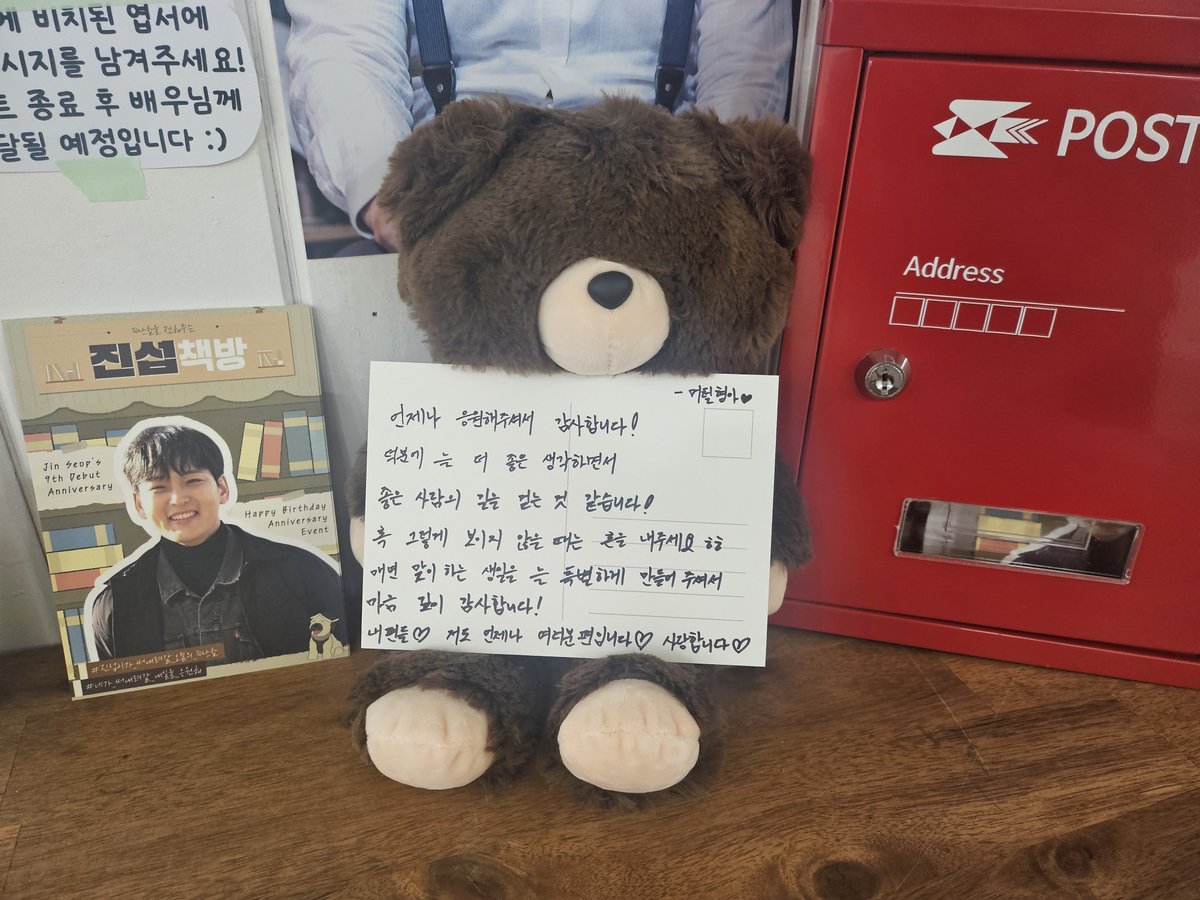 께 비치된 엽서에
시지를 남겨주세요!
트 종료 후 배우님께
달될 예정입니다 :)
진섭책방
Jin Seop's
9th Debut
Anniversary
Happy Birthday
Anniversary
Event
#진섭이가_써내려갈_오늘의_편안함
#네가_써내려갈_내일을_응원해
- 머털형아♥
언제나 응원해주셔서 감사합니다!
덕분에 늘 더 좋은 생각하면서
좋은 사람의 길을 걷는 것 같습니다!
혹 그렇게 보이지 않을 때는 혼을 내주세요 ㅎㅎ
매면 맞이 하는 생일을 늘 특별하게 만들어 주셔서
마음 깊이 감사합니다!
내편들♡ 저도 언제나 여러분편입니다♡ 사랑합니다♡
POST
Address